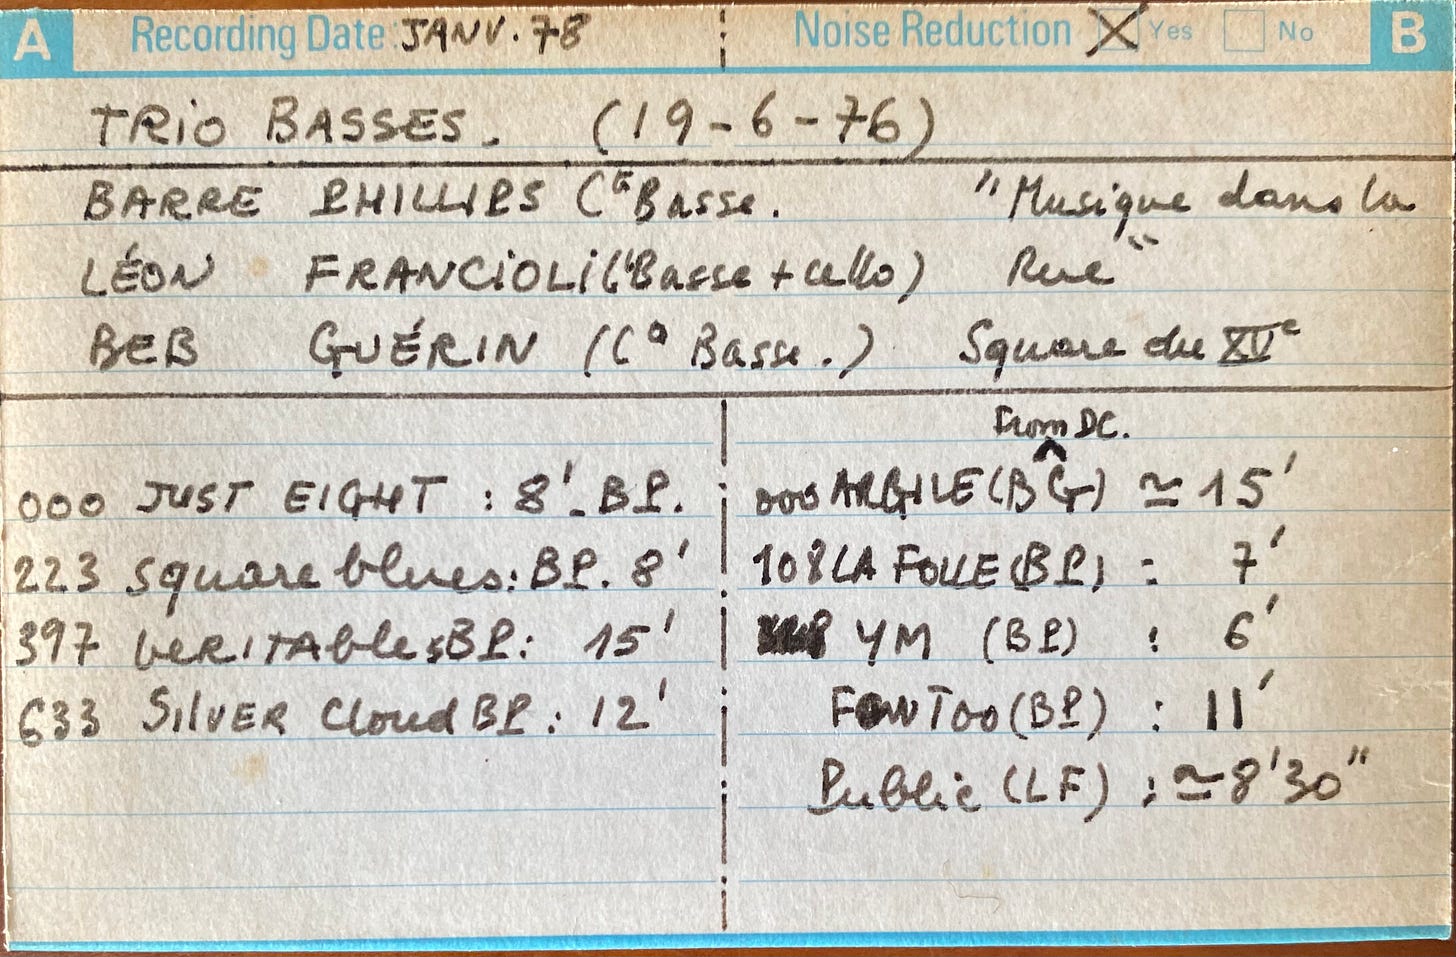 A Recording Date: JANV. 78 Noise Reduction Yes No B
TRIO BASSES. (19-6-76)
BARRE PHILLIPS (Cᵉ Basse. "Musique dans la
LÉON FRANCIOLI (Basse + cello) Rue"
BEB GUÉRIN (Cᵉ Basse.) Square du XVᵉ
000 JUST EIGHT : 8' - BP.
223 square blues: BP. 8'
397 VERITABLES BP: 15'
633 SILVER Cloud BP: 12'
From DC.
000 ARGILE (BG) ≃ 15'
108 LA FOLLE (BP) : 7'
YM (BP) : 6'
TOO (BP) : 11'
Public (LF) : ≃ 8'30"